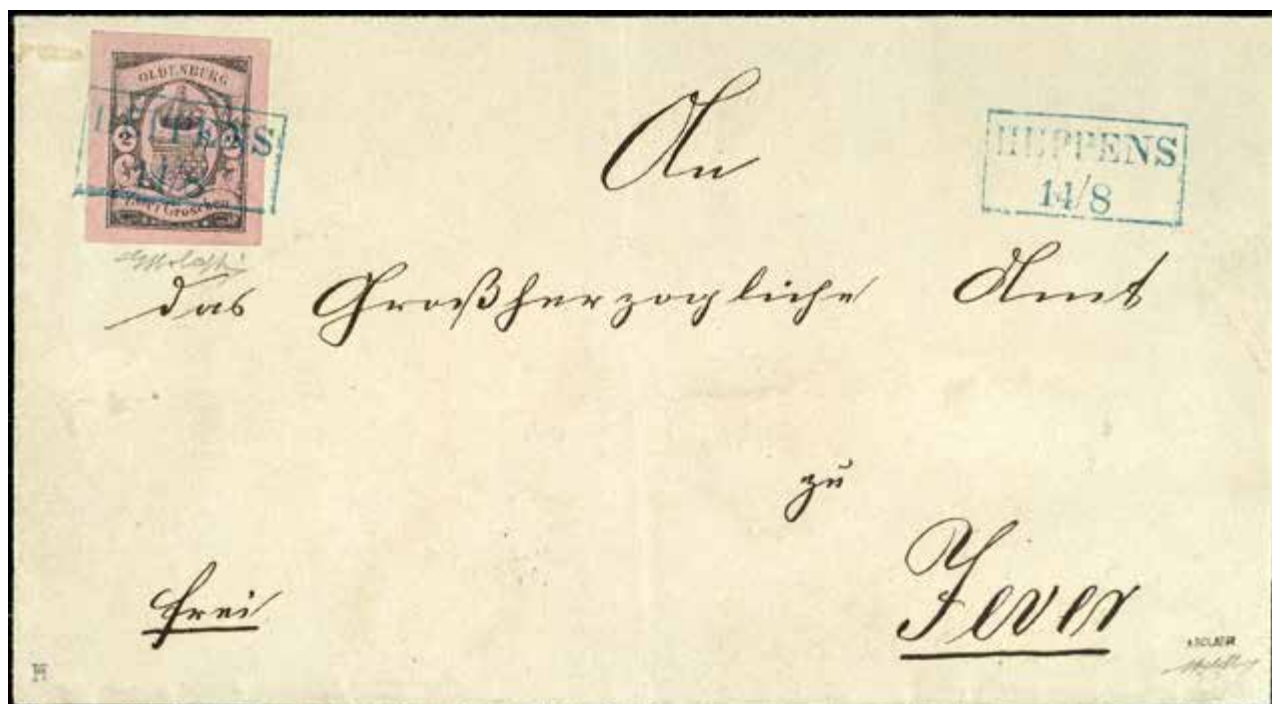 OLDENBURG
2 2
Zwei Groschen
PENS
14/8
HEPPENS
14/8
An
das Großherzogliche Amt
zu
Jever
frei